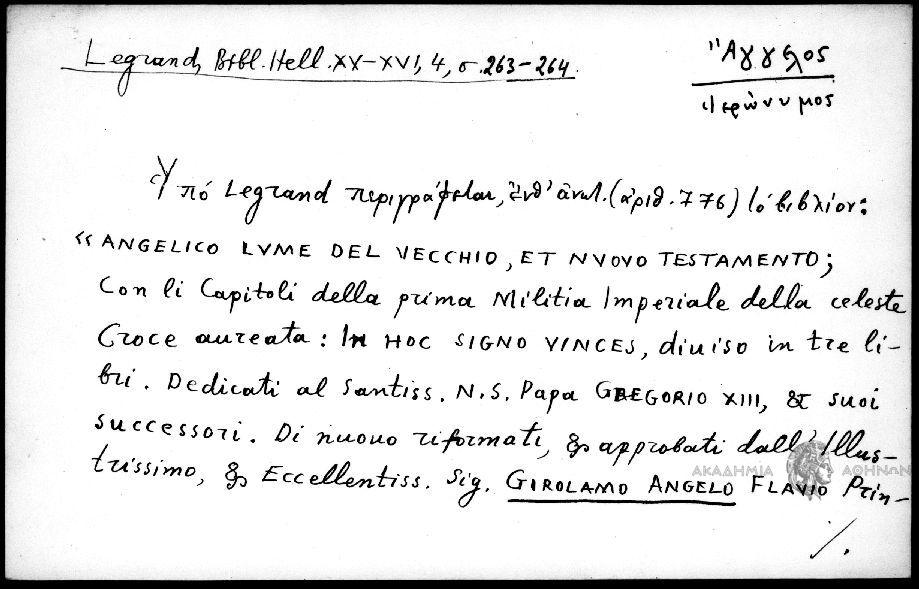 Legrand, Bibl. Hell. XV–XVI, 4, σ. 263–264.
Ἄγγελος
Ἱερώνυμος
Ὑπό Legrand περιγράφεται, ἔνθ' ἀνωτ. (ἀριθ. 776) τό βιβλίον:
«ANGELICO LVME DEL VECCHIO, ET NVOVO TESTAMENTO;
Con li Capitoli della prima Militia Imperiale della celeste
Croce aureata: IN HOC SIGNO VINCES, diuiso in tre li-
bri. Dedicati al Santiss. N.S. Papa GREGORIO XIII, & suoi
successori. Di nuouo riformati, & approbati dall' Illus-
trissimo, & Eccellentiss. Sig. GIROLAMO ANGELO FLAVIO Prin-
ΑΚΑΔΗΜΙΑ ΑΘΗΝΩΝ
./.